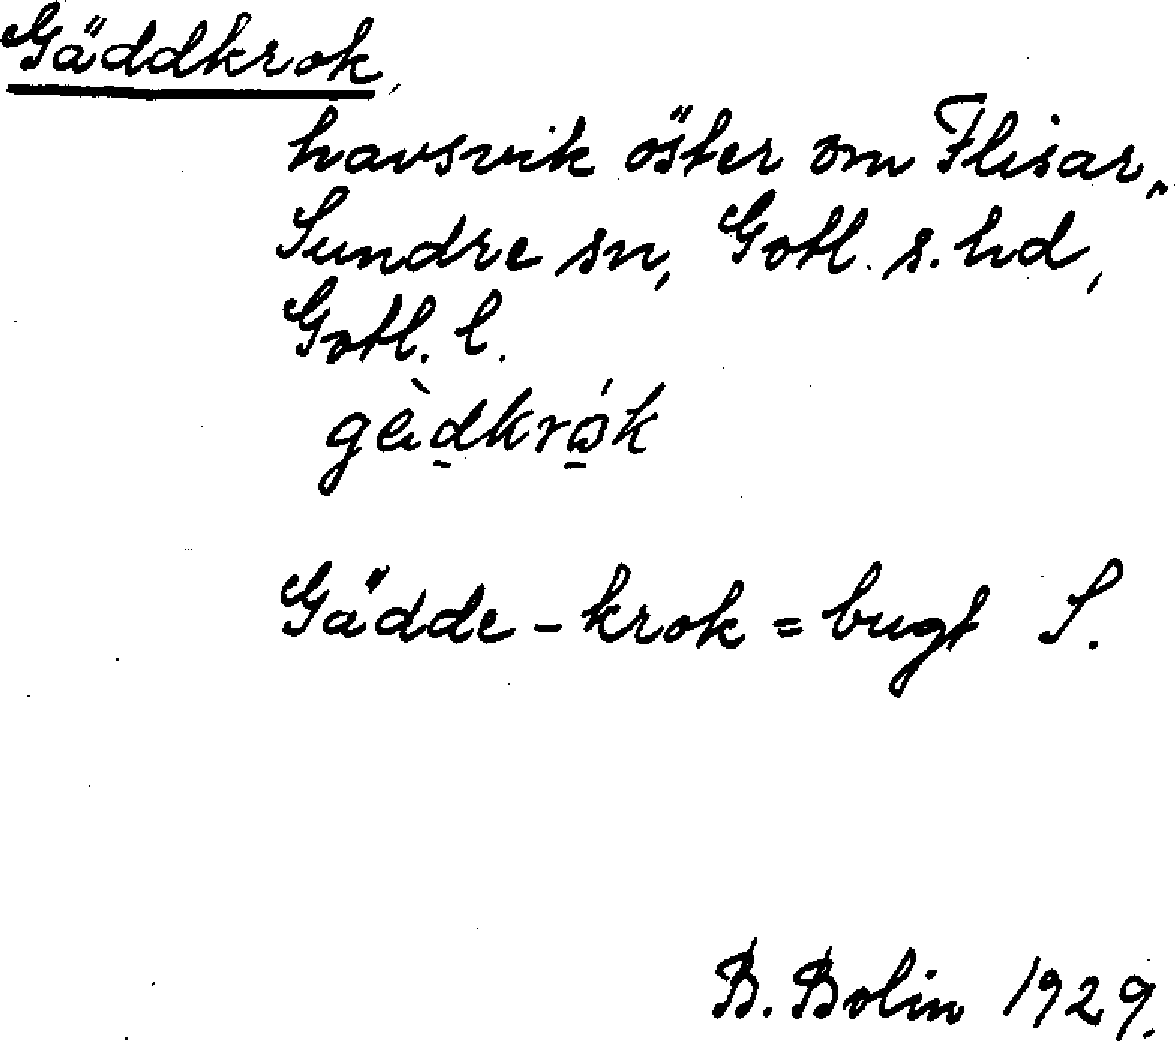 Gäddkrok,
havsvik öster om Flisar,
Sundre sn, Gotl. s. hd,
Gotl. l.
Gädde - krok = bugt S.
B. Bolin 1929.